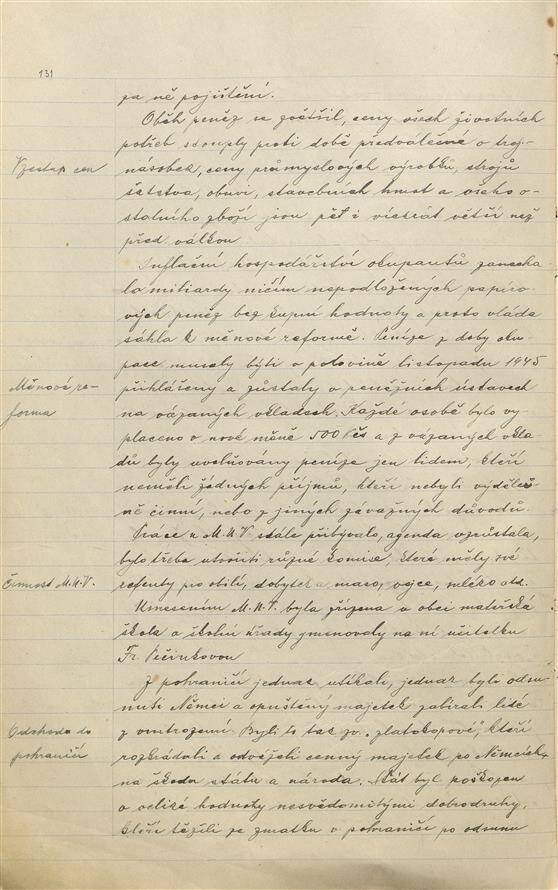 131
za ně pojištění.
Oběh peněz se zvětšil, ceny všech životních
potřeb stouply proti době předválečné o troj-
Vzestup cen
násobek, ceny průmyslových výrobků, strojů
šatstva, obuvi, stavebních hmot a všeho o-
statního zboží jsou pět i vícekrát větší než
před válkou
Inflační hospodářství okupantů zanecha-
lo miliardy ničím nepodložených papíro-
vých peněz bez kupní hodnoty a proto vláda
sáhla k měnové reformě. Peníze z doby oku-
pace musely býti v polovině listopadu 1945
Měnová re-
forma
přihlášeny a zůstaly v peněžních ústavech
na vázaných vkladech. Každé osobě bylo vy-
placeno v nové měně 500 Kčs a z vázaných vkla-
dů byly uvolňovány peníze jen lidem, kteří
neměli žádných příjmů, kteří nebyli výděleč-
ně činní, nebo z jiných závažných důvodů.
Práce u M.N.V. stále přibývalo, agenda vzrůstala,
bylo třeba utvořiti různé komise, které měly své
Činnost M.N.V.
referenty pro obilí, dobytek a maso, vejce, mléko atd.
Usnesením M.N.V. byla zřízena v obci mateřská
škola a školní úřady jmenovaly na ni učitelku
Fr. Pečinkovou
Z pohraničí jednak utíkali, jednak byli odsu-
nuti Němci a opuštěný majetek zabírali lidé
Odchod do
pohraničí
z vnitrozemí. Byli to tak zv. „zlatokopové", kteří
rozkrádali a odváželi cenný majetek po Němcích
na škodu státu a národa. Stát byl poškozen
o veliké hodnoty nesvědomitými dobrodruhy,
kteří těžili ze zmatku v pohraničí po odsunu